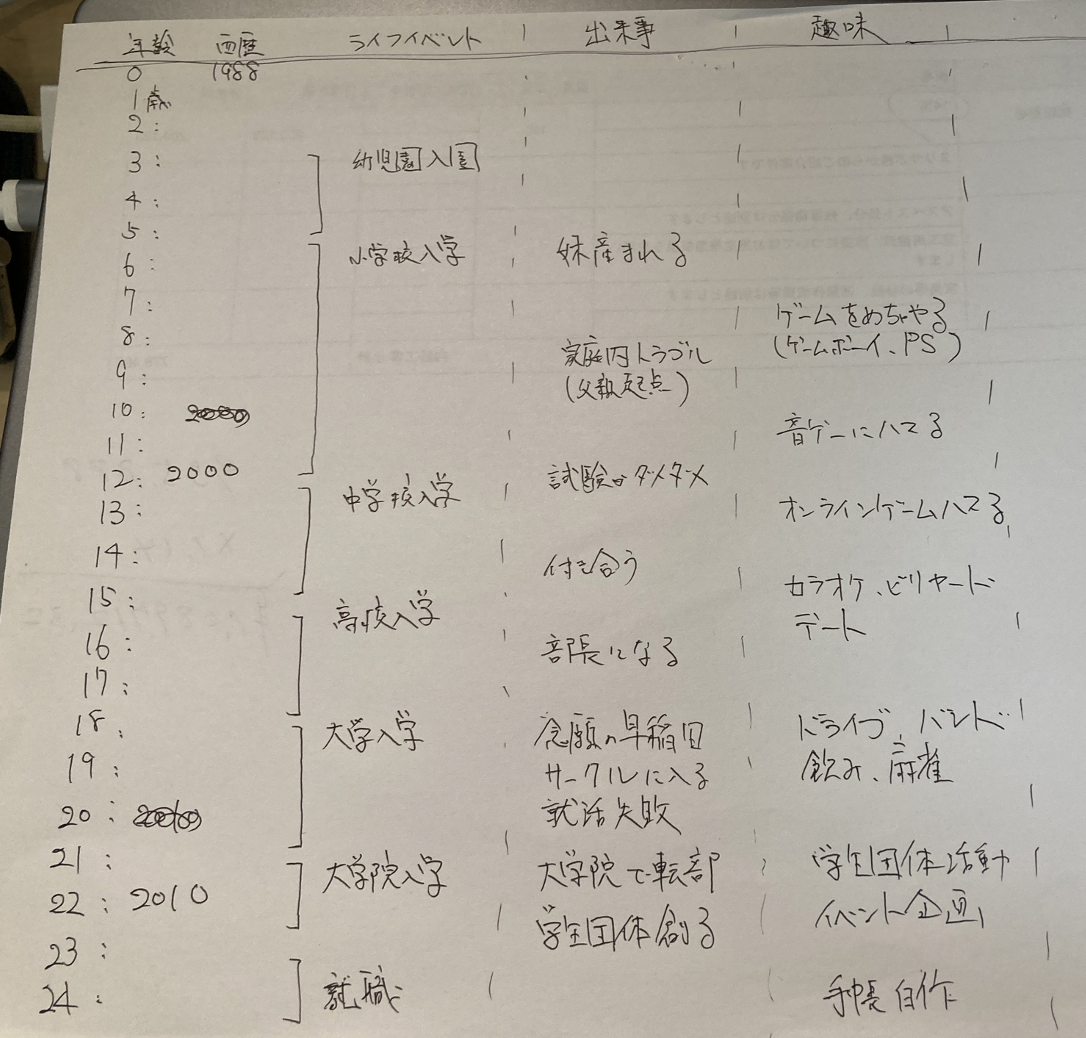 年齢 西歴 ライフイベント 出来事 趣味
0 1988
1歳
2:
3: 幼児園入園
4:
5:
6: 小学校入学 妹産まれる
7: ゲームをめちゃやる
8: (ゲームボーイ、PS)
家庭内トラブル
9: (父親起点)
10:
11: 音ゲーにハマる
12: 2000 試験はダメダメ
13: 中学校入学 オンラインゲームハマる
14: 付き合う
15: 高校入学 カラオケ、ビリヤード
デート
16: 部長になる
17:
18: 大学入学 念願の早稲田 ドライブ、バンド
19: サークルに入る 飲み、麻雀
20: 就活失敗
21: 大学院入学 大学院で転部 学生団体活動
22: 2010 学生団体創る イベント企画
23:
24: 就職 手帳自作